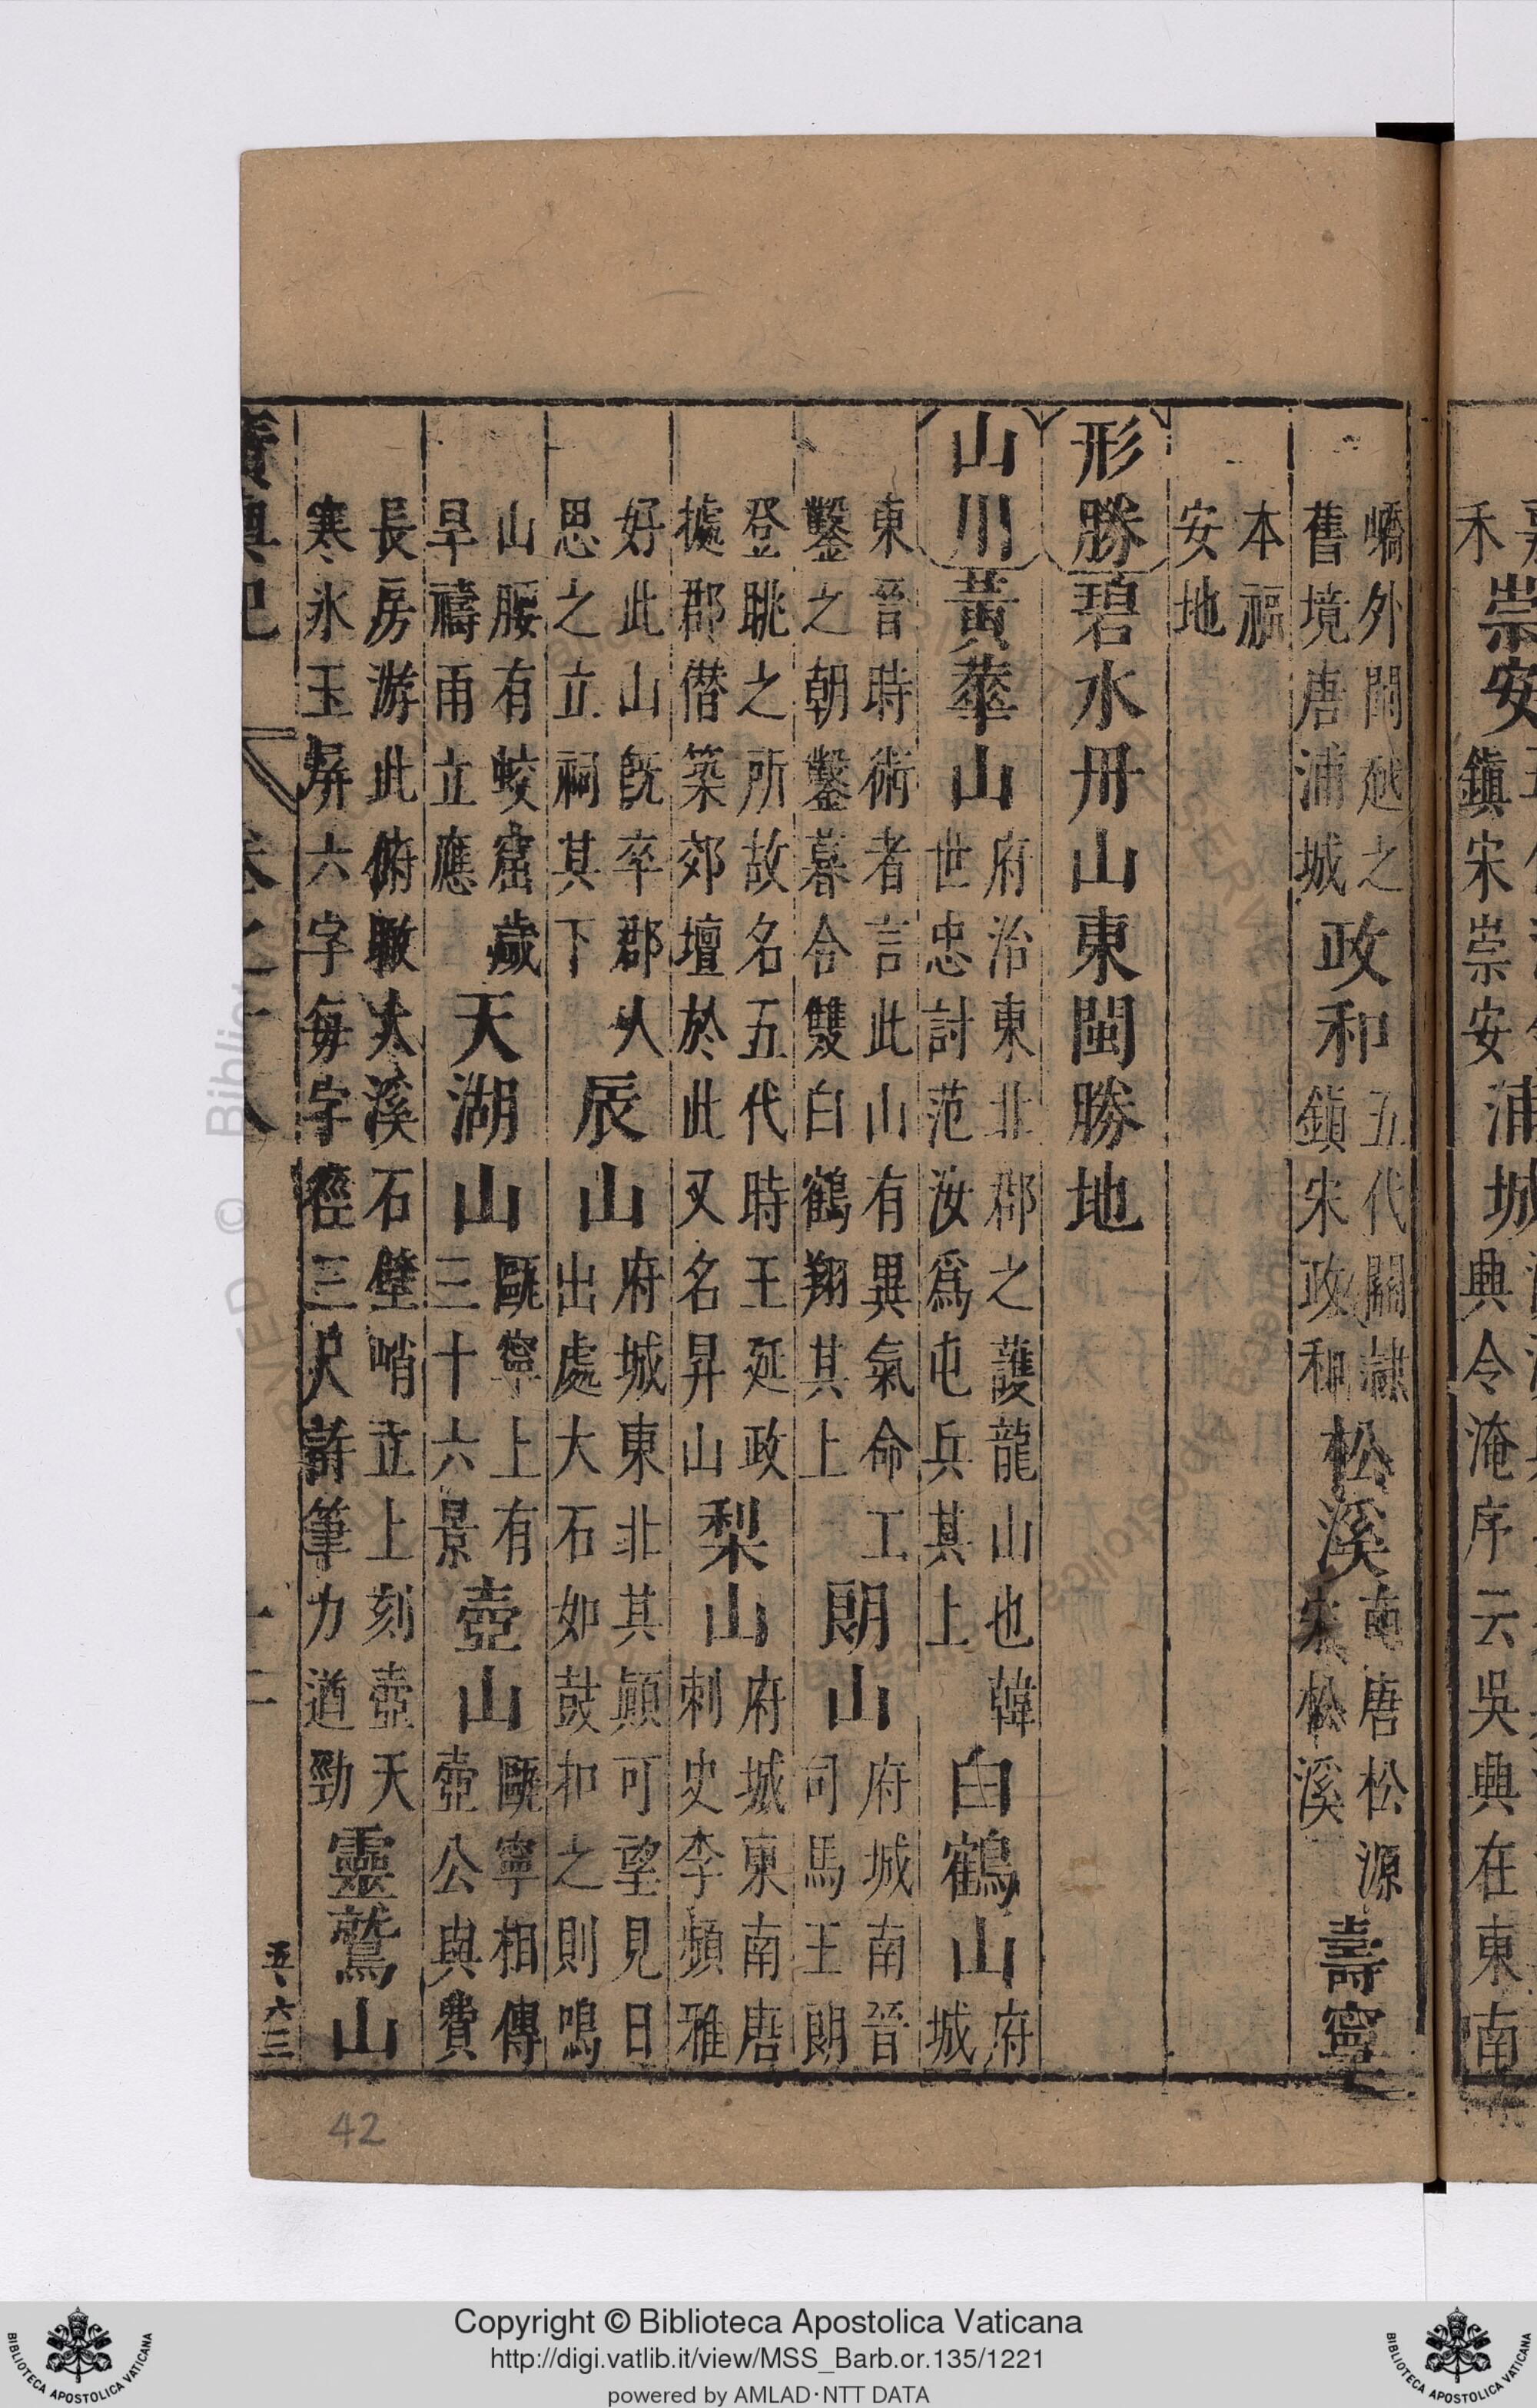 崇安
鎮宋崇安
浦城
禾
興令淹序云吳興在東南
嶠外閩越之
舊境唐浦城
政和
五代關隷
鎮宋政和
松溪
南唐松源
宋松溪
壽寧
本福
安地
形勝
碧水丹山東閩勝地
山川
黃華山
府治東北郡之護龍山也韓
世忠討范汝爲屯兵其上
白鶴山
府
城
東晉時術者言此山有異氣命工
鑿之朝鑿暮合雙白鶴翔其上
朗山
府城南晉
司馬王朗
登眺之所故名五代時王延政
據郡僣築郊壇於此又名昇山
梨山
府城東南唐
刺史李頻雅
好此山旣卒郡人
思之立祠其下
辰山
府城東北其顚可望見日
出處大石如鼓扣之則鳴
山腰有蛟窟歲
旱禱雨立應
天湖山
甌寧上有
三十六景
壺山
甌寧相傳
壺公與費
長房游此俯瞰大溪石壁峭立上刻壺天
寒氷玉屏六字每字徑三尺許筆力遒勁
靈鷲山
廣輿記
卷之十八
十二
五六三
42
Copyright © Biblioteca Apostolica Vaticana
http://digi.vatlib.it/view/MSS_Barb.or.135/1221
powered by AMLAD·NTT DATA
BIBLIOTECA APOSTOLICA VATICANA
BIBLIOTECA APOSTOLICA VATICANA